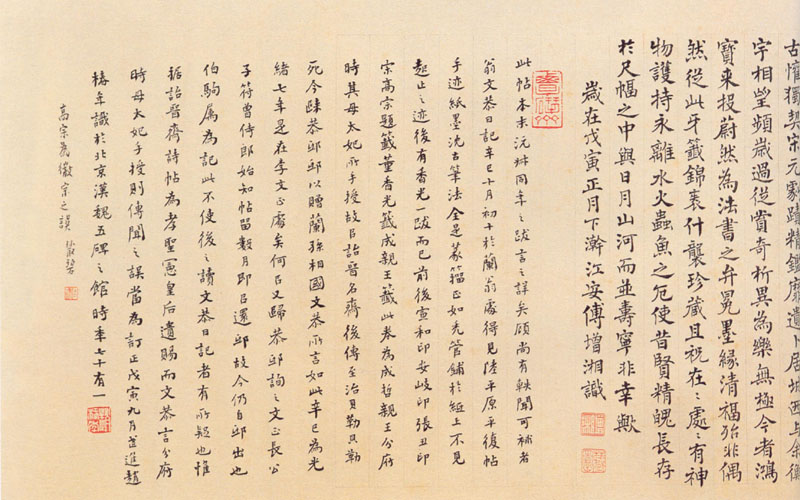 古懽獨契宋元劇蹟精鑒靡遺卜居城西與余衡
宇相望頻歲過從賞奇析異為樂無極今者鴻
寶來投蔚然為法書之弁冕墨緣清福殆非偶
然從此牙籤錦裹什襲珍藏且祝在〻處〻有神
物護持永離水火蟲魚之厄使昔賢精魄長存
於尺幅之中與日月山河而並壽寧非幸歟
歲在戊寅正月下澣江安傅增湘識
此帖本末沅叔同年之跋言之詳矣顧尚有軼聞可補者
翁文恭日記辛巳十月初十於蘭翁處得見陸平原平復帖
手迹紙墨沈古筆法全是篆籀正如禿管鋪於紙上不見
起止之迹後有香光一跋而已前後宣和印安岐印張丑印
宋高宗題籤董香光籤成親王籤此卷為成哲親王分府
時其母太妃所手授故自詒晉名齋後傳至治貝勒貝勒
死今歸恭邸邸以贈蘭孫相國文恭所言如此辛巳為光
緒七年是在李文正處矣何以又歸恭邸詢之文正長公
子符曾侍郎始知帖留數月即以還邸故今仍自邸出也
伯駒屬為記此不使後之讀文恭日記者有所疑也惟
據詒晉齋詩帖為孝聖憲皇后遺賜而文恭言分府
時母太妃手授則傳聞之誤當為訂正戊寅九月武進趙
椿年識於北京漢魏五碑之館時年七十有一
高宗為徽宗之誤